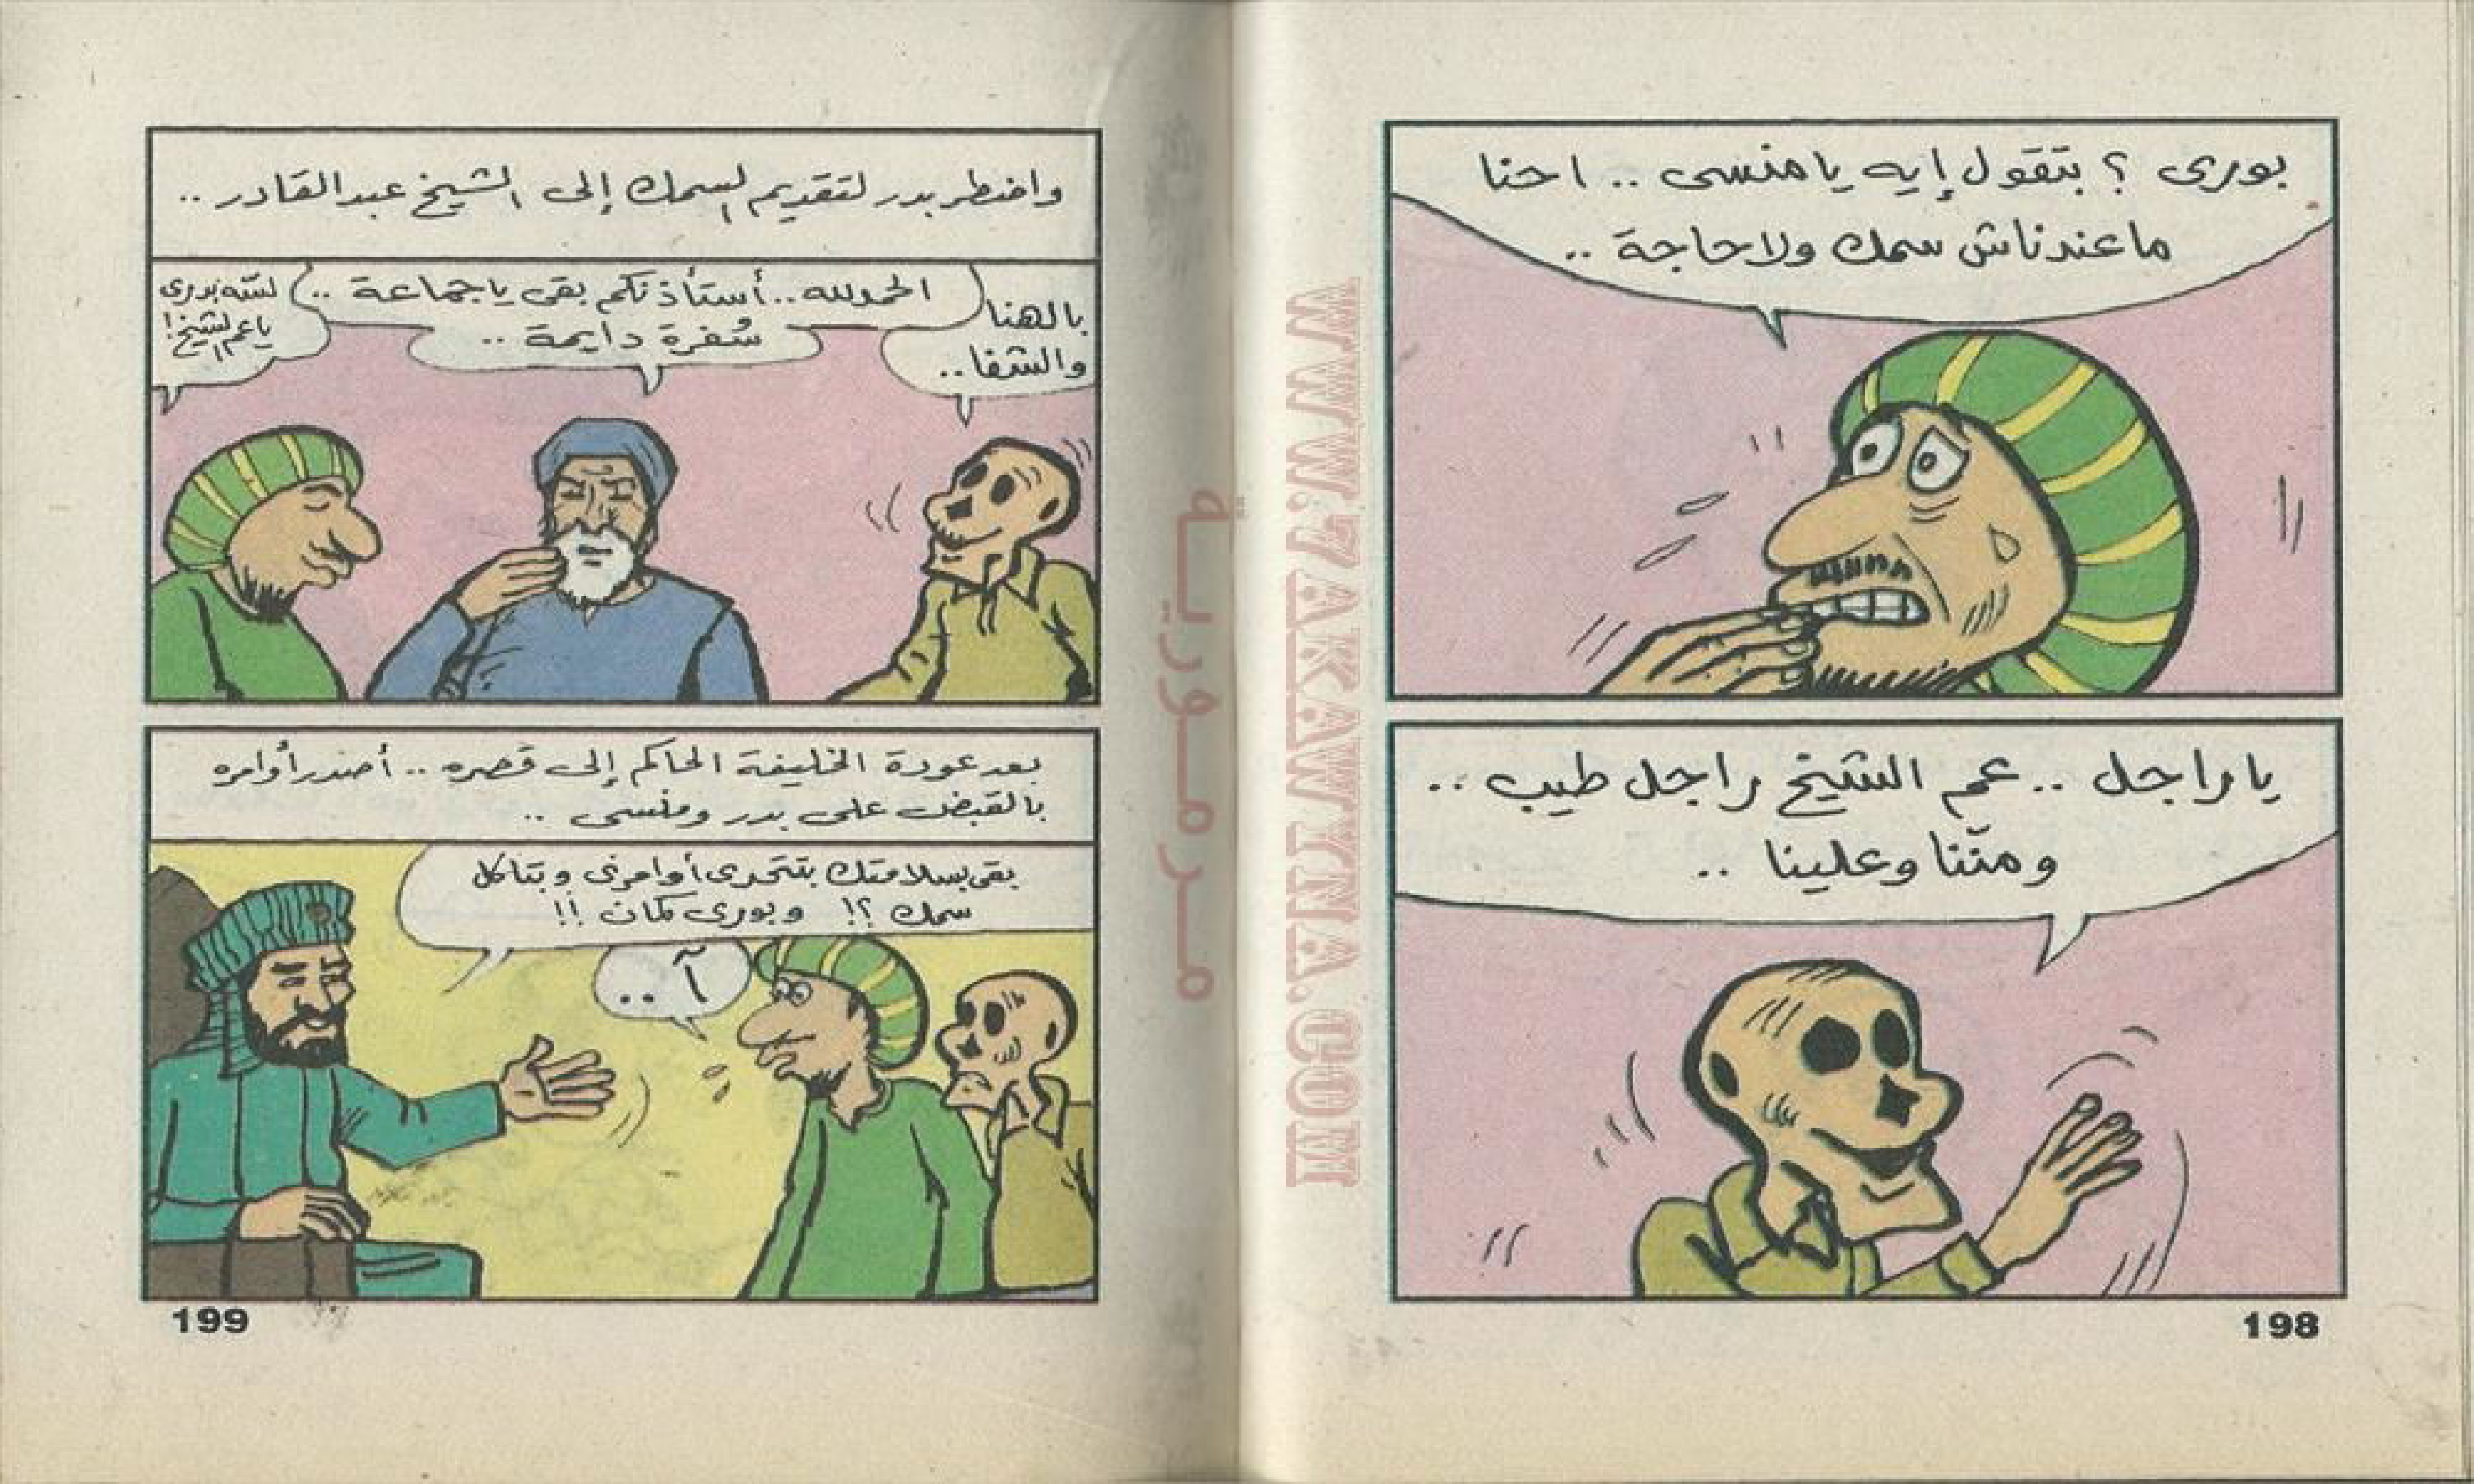 بورى ؟ بتقول إيه يا منسى .. احنا
ماعندناش سمك ولا حاجة ..
يا راجل .. عم الشيخ راجل طيب ..
ومننا وعلينا ..
198
واضطر بدر لتقديم السمك إلى الشيخ عبد القادر ..
بالهنا
والشفا ..
الحمد لله .. أستأذنكم بقى يا جماعة ..
سُفرة دايمة ..
لسّه بدرى
يا عم الشيخ !
بعد عودة الخليفة الحاكم إلى قصره .. أصدر أوامره
بالقبض على بدر ومنسى ..
بقى بسلامتك بتتحدى أوامرى وبتاكل
سمك ؟! وبورى كمان !!
آ ..
199
مرمورية